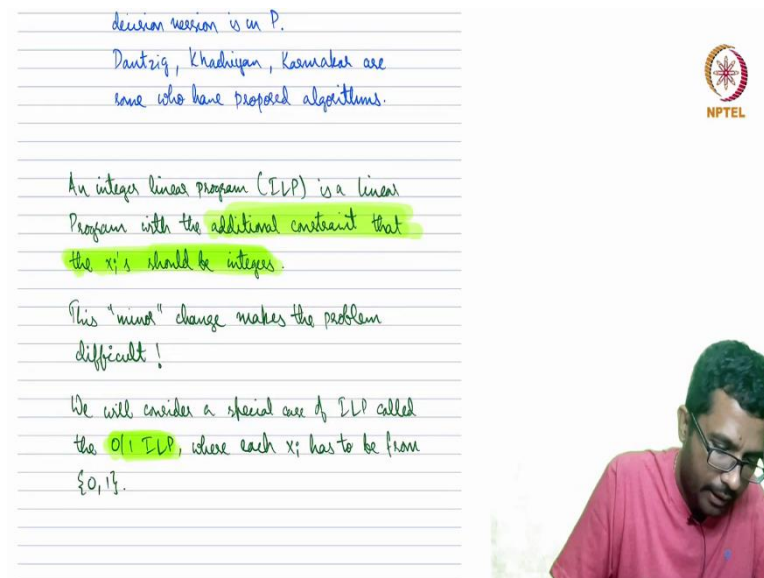 decision version is in P.
Dantzig, Khachiyan, Karmakar are
some who have proposed algorithms.
NPTEL
An integer linear program (ILP) is a linear
Program with the additional constraint that
the xi's should be integers.
This "minor" change makes the problem
difficult!
We will consider a special case of ILP called
the 0/1 ILP, where each xi has to be from
{0,1}.